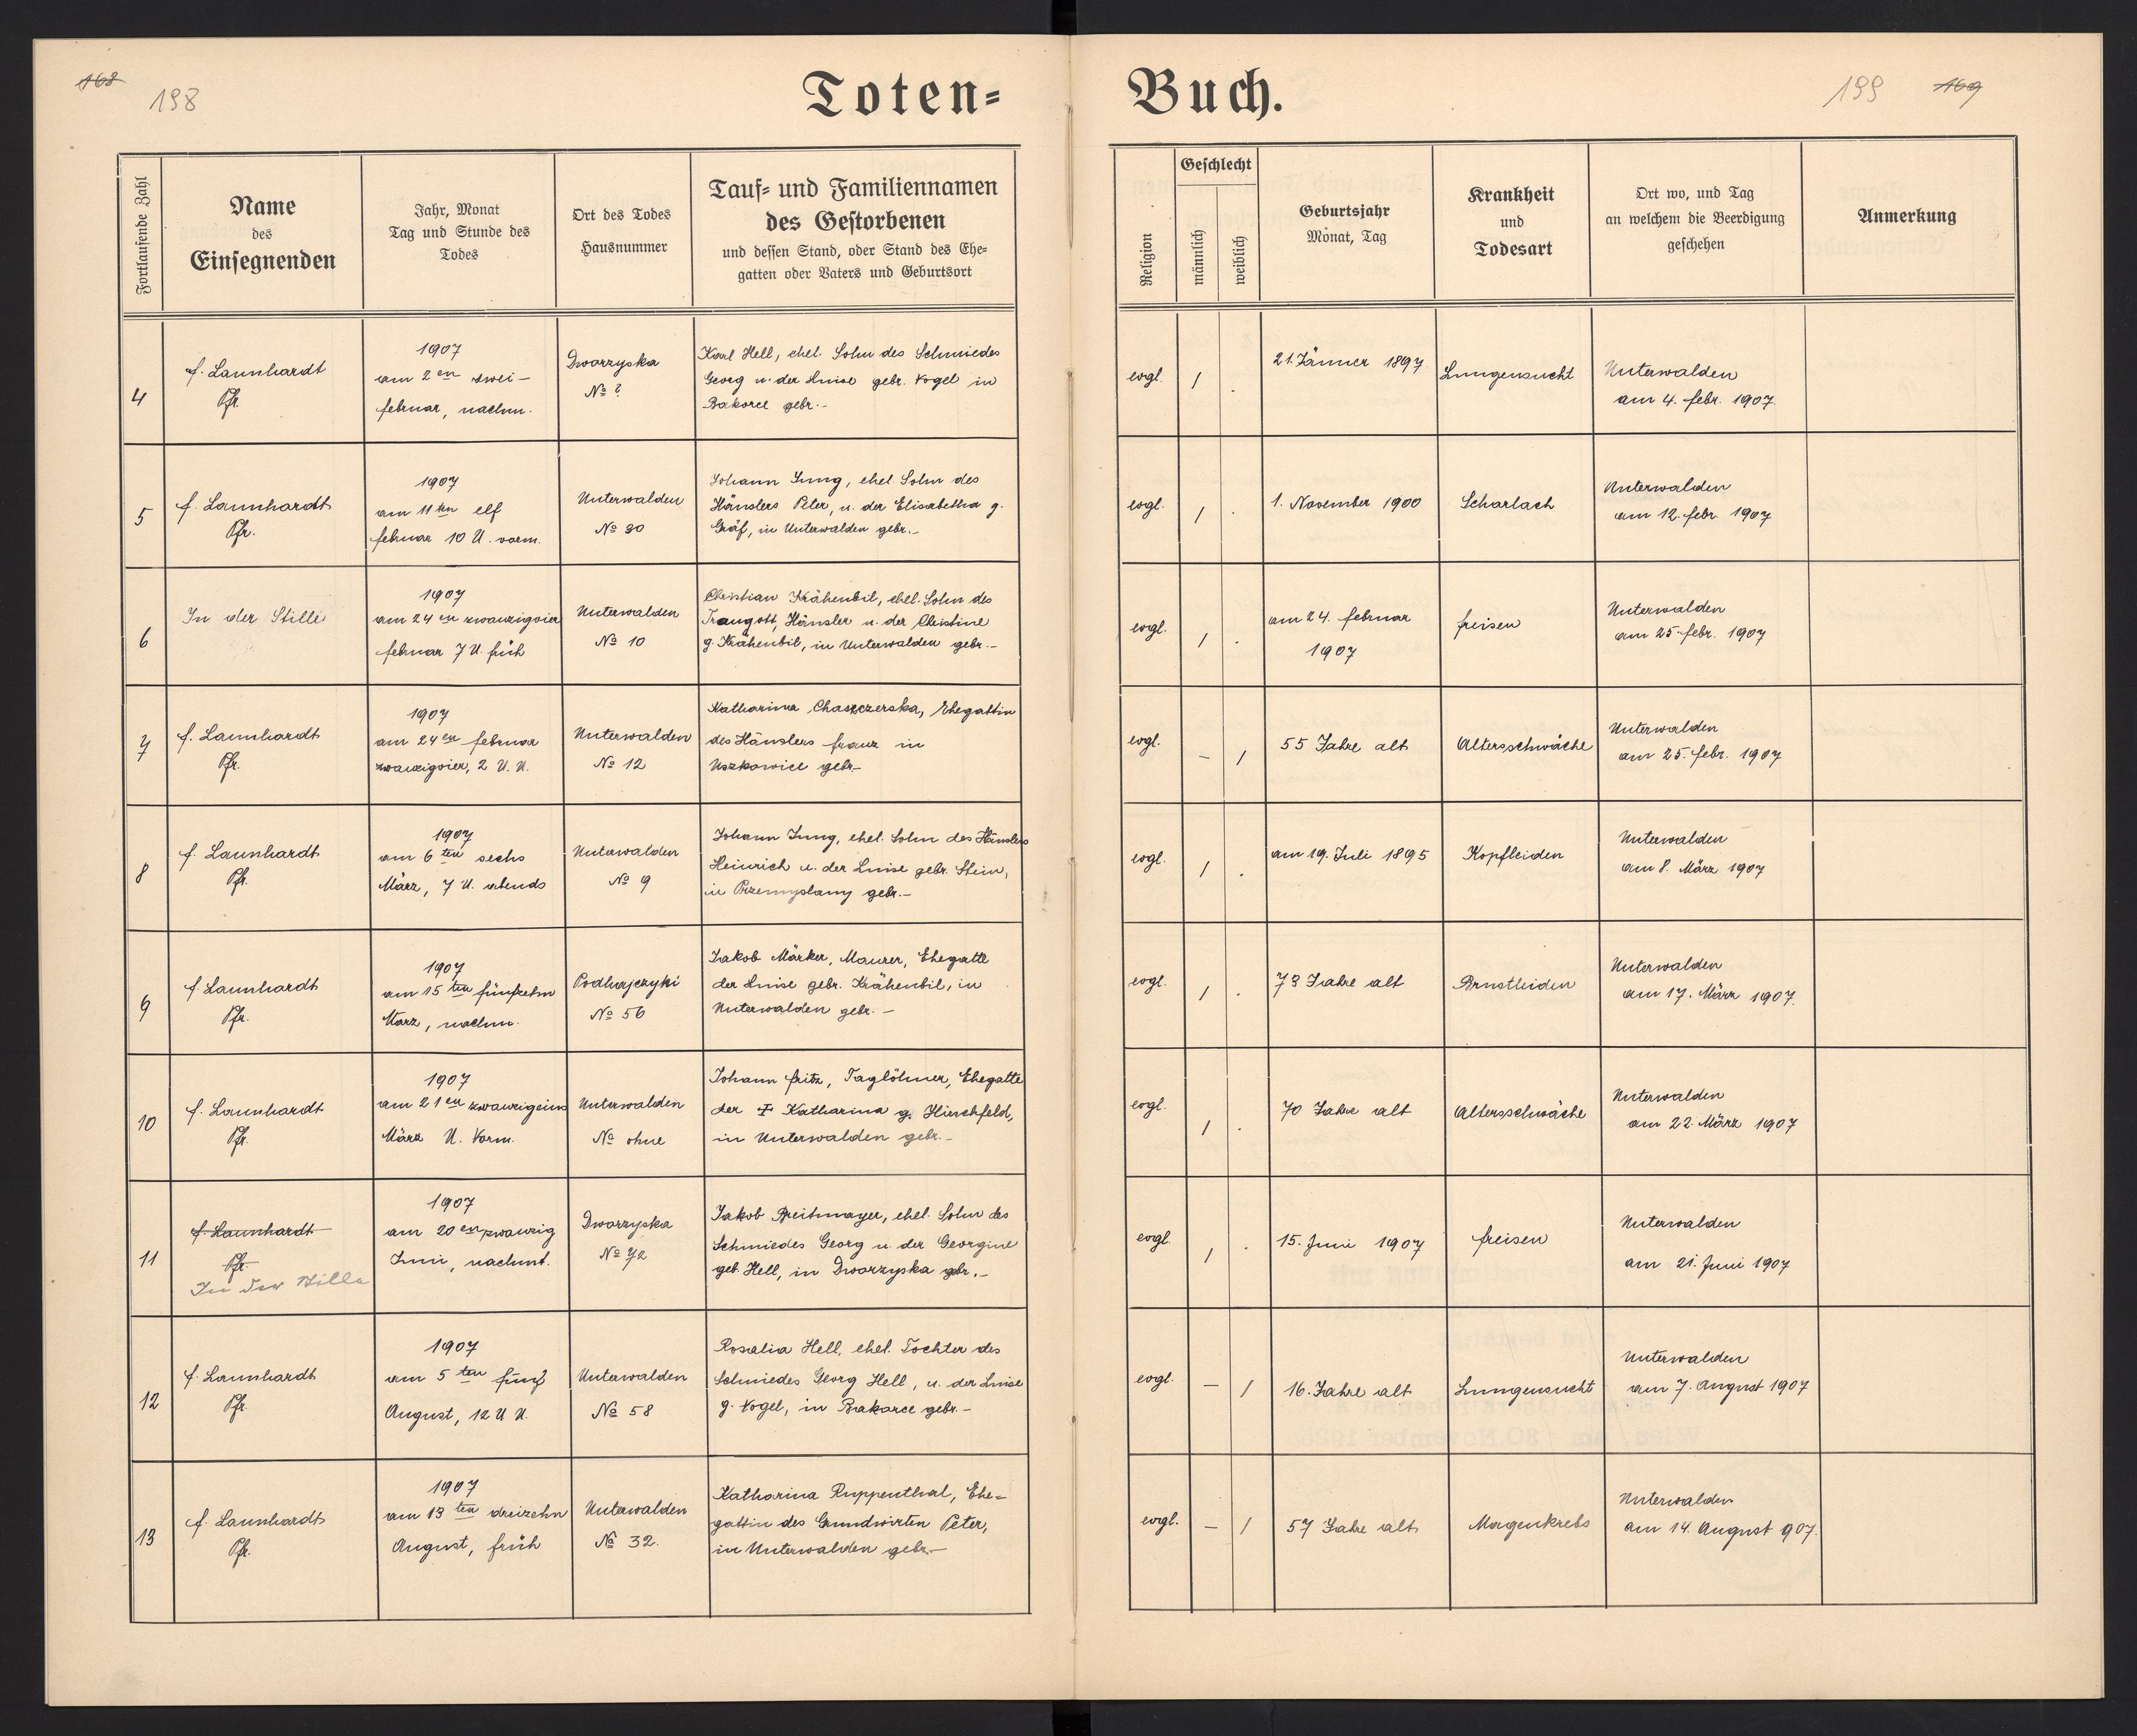 168
198
Toten=
Buch.
199
169
Fortlaufende Zahl
Name
des
Einsegnenden
Jahr, Monat
Tag und Stunde des
Todes
Ort des Todes
Hausnummer
Tauf= und Familiennamen
des Gestorbenen
und dessen Stand, oder Stand des Ehe=
gatten oder Vaters und Geburtsort
Religion
Geschlecht
männlich
weiblich
Geburtsjahr
Monat, Tag
Krankheit
und
Todesart
Ort wo, und Tag
an welchem die Beerdigung
geschehen
Anmerkung
4
f. Launhardt
Pfr.
1907
am 2en zwei-
februar, nachm.
Dworzyska
No ?
Karl Hell, ehel. Sohn des Schmiedes
Georg u. der Luise gebr. Vogel in
Bakorce gebr.-
evgl.
/
.
21. Jänner 1897
Lungensucht
Unterwalden
am 4. febr. 1907.
5
f. Launhardt
Pfr.
1907
am 11ten elf
februar 10 U. vorm.
Unterwalden
No 30
Johann Jung, ehel. Sohn des
Häuslers Peter, u. der Elisabetha g.
Gräf, in Unterwalden gebr.-
evgl.
/
.
1. November 1900
Scharlach
Unterwalden
am 12. febr. 1907
6
In der Stille
1907
am 24en zwanzigvier
februar 7 U. früh
Unterwalden
No 10
Christian Krähenbil, ehel. Sohn des
Traugott, Häusler u. der Christine
g. Krähenbil, in Unterwalden gebr.-
evgl.
/
.
am 24. februar
1907
freisen
Unterwalden
am 25. febr. 1907
7
f. Launhardt
Pfr.
1907
am 24en februar
zwanzigvier, 2 U. N.
Unterwalden
No 12
Katharina Chaszczerska, Ehegattin
des Häuslers franz in
Uszkowice gebr-
evgl.
–
/
55 Jahre alt
Altersschwäche
Unterwalden
am 25. febr. 1907
8
f. Launhardt
Pfr.
1907
am 6ten sechs
März, 7 U. abends
Unterwalden
No 9
Johann Jung, ehel. Sohn des Häuslers
Heinrich u. der Luise gebr. Stein,
in Przemyslany gebr.-
evgl.
/
.
am 19. Juli 1895
Kopfleiden
Unterwalden
am 8. März 1907
9
f. Launhardt
Pfr.
1907
am 15ten fünfzehn
März, nachm.
Podhajczyki
No 56
Jakob Märker, Maurer, Ehegatte
der Luise gebr. Krähenbil, in
Unterwalden gebr. -
evgl.
/
.
73 Jahre alt
Brustleiden
Unterwalden
am 17. März 1907.
10
f. Launhardt
Pfr.
1907
am 21en zwanzigeins
März U. Vorm.
Unterwalden
No ohne
Johann fritz, Taglöhner, Ehegatte
der ✝ Katharina g. Hirschfeld,
in Unterwalden gebr.-
evgl.
/
.
70 Jahre alt
Altersschwäche
Unterwalden
am 22. März 1907
11
f. Launhardt
Pfr.
In der Stille
1907
am 20en zwanzig
Juni, nachmt.
Dworzyska
No 72
Jakob Breitmayer, ehel. Sohn des
Schmiedes Georg u. der Georgine
geb. Hell, in Dworzyska gebr.-
evgl.
/
.
15. Juni 1907
freisen
Unterwalden
am 21. Juni 1907
12
f. Launhardt
Pfr.
1907
am 5ten fünf
August, 12 U N.
Unterwalden
No 58
Rosalia Hell, ehel. Tochter des
Schmiedes Georg Hell, u. der Luise
g. Vogel, in Bakorce gebr.-
evgl.
–
/
16. Jahre alt
Lungensucht
Unterwalden
am 7. August 1907
13
f. Launhardt
Pfr.
1907
am 13ten dreizehn
August, früh
Unterwalden
No 32.
Katharina Ruppenthal, Ehe=
gattin des Grundwirten Peter,
in Unterwalden gebr.-
evgl.
–
/
57 Jahre alt
Magenkrebs
Unterwalden
am 14. August 907.